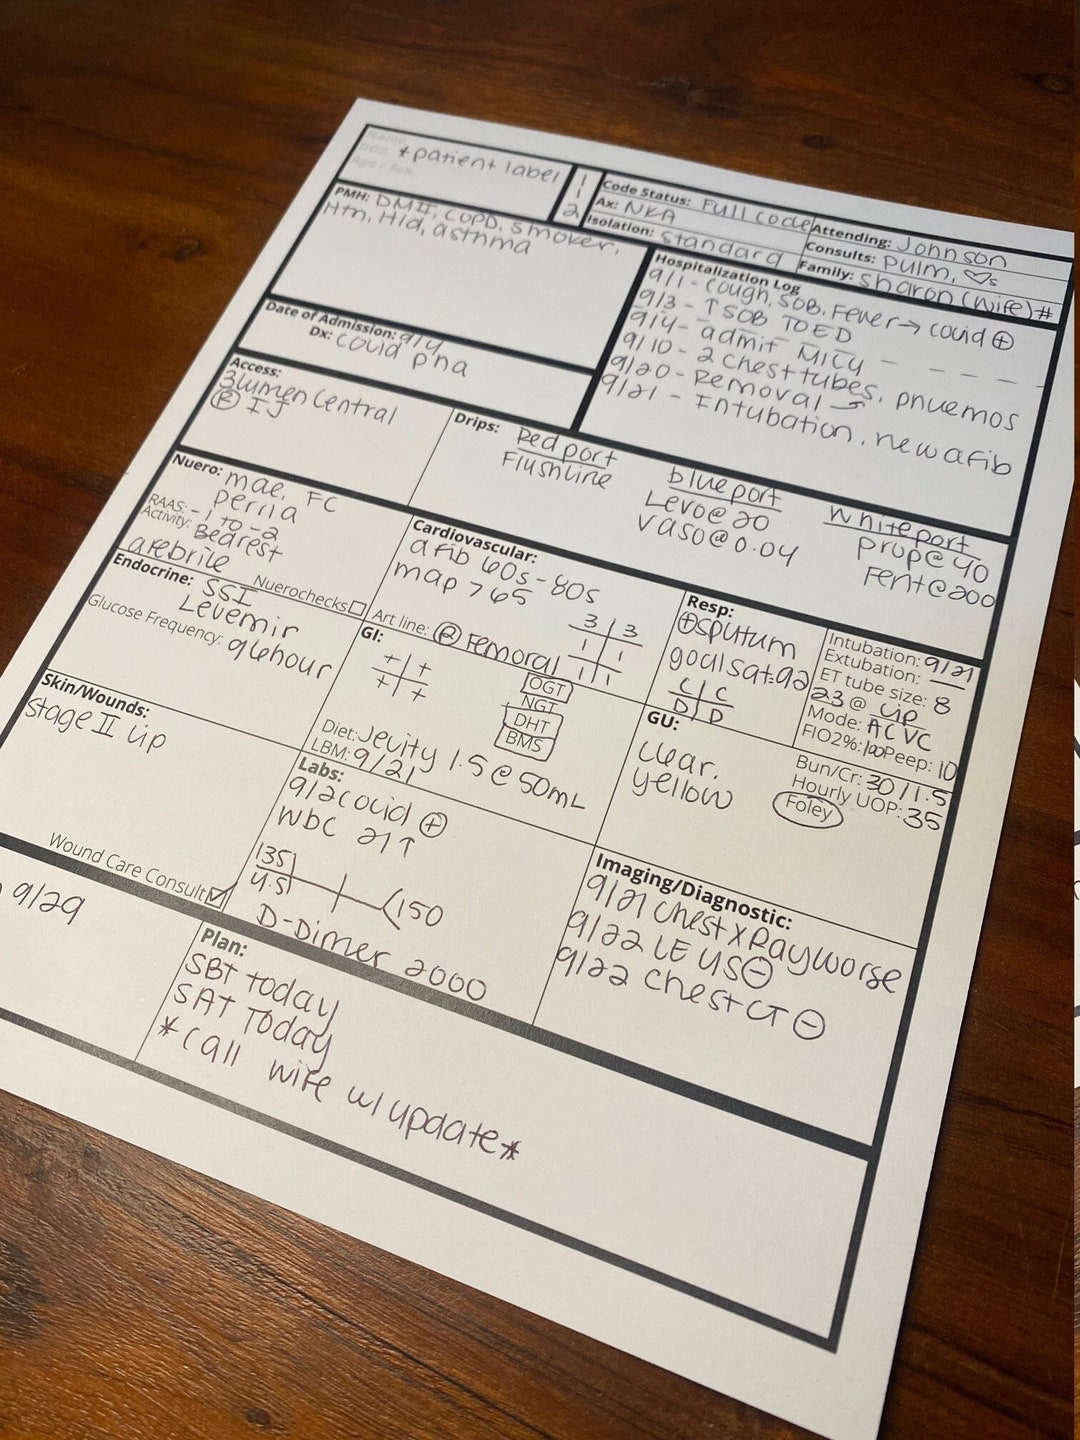 Name:
DOB
Age / Sex
*patient label
1
1
2
Code Status: Full code
Ax: NKA
Isolation: standard
Attending: Johnson
Consults: pulm, ♡s
Family: sharon (wife)#
PMH: DMII, COPD, smoker,
Htn, Hld, asthma
Hospitalization Log
9/1 - cough, SOB, Fever → covid ⊕
9/3 - ↑ SOB TO ED
9/4 - admit MICU
9/10 - 2 chest tubes, pnuemos
9/20 - Removal
9/21 - Intubation, new afib
Date of Admission: 9/4
Dx: covid pna
Access:
3 lumen central
Ⓡ IJ
Drips:
Red port
Flushline
blue port
Levo@20
vaso@0.04
white port
prop@40
Fent@200
Nuero: mae, FC
perrla
RAAS: -1 to -2
Activity: Bedrest
afebrile
Nuerochecks
Cardiovascular:
afib 60s-80s
map >65
Art line: Ⓡ Femoral
3 3
1 1
1 1
Resp:
⊕sputum
goal sat: 92
C C
D D
Intubation: 9/21
Extubation: —
ET tube size: 8
23 @ lip
Mode: ACVC
FIO2%: 100 Peep: 10
Endocrine: SSI
Levemir
Glucose Frequency: q6hour
GI:
+ +
+ +
OGT
NGT
DHT
BMS
Diet: Jevity 1.5 @ 50mL
LBM: 9/21
GU:
clear,
yellow
Bun/Cr: 30/1.5
Hourly UOP: 35
Foley
Skin/Wounds:
stage II lip
Wound Care Consult ✓
Labs:
9/2 covid ⊕
wbc 21↑
135
4.5
150
D-Dimer 2000
Imaging/Diagnostic:
9/21 chest xRay worse
9/22 LE US ⊖
9/22 chest CT ⊖
9/29
Plan:
SBT today
SAT Today
*call wife w/ update*